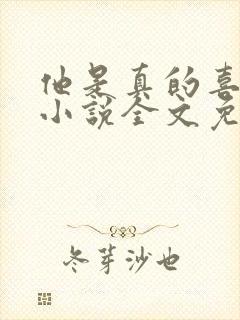 他是真的喜
小说全文免
冬芽沙也